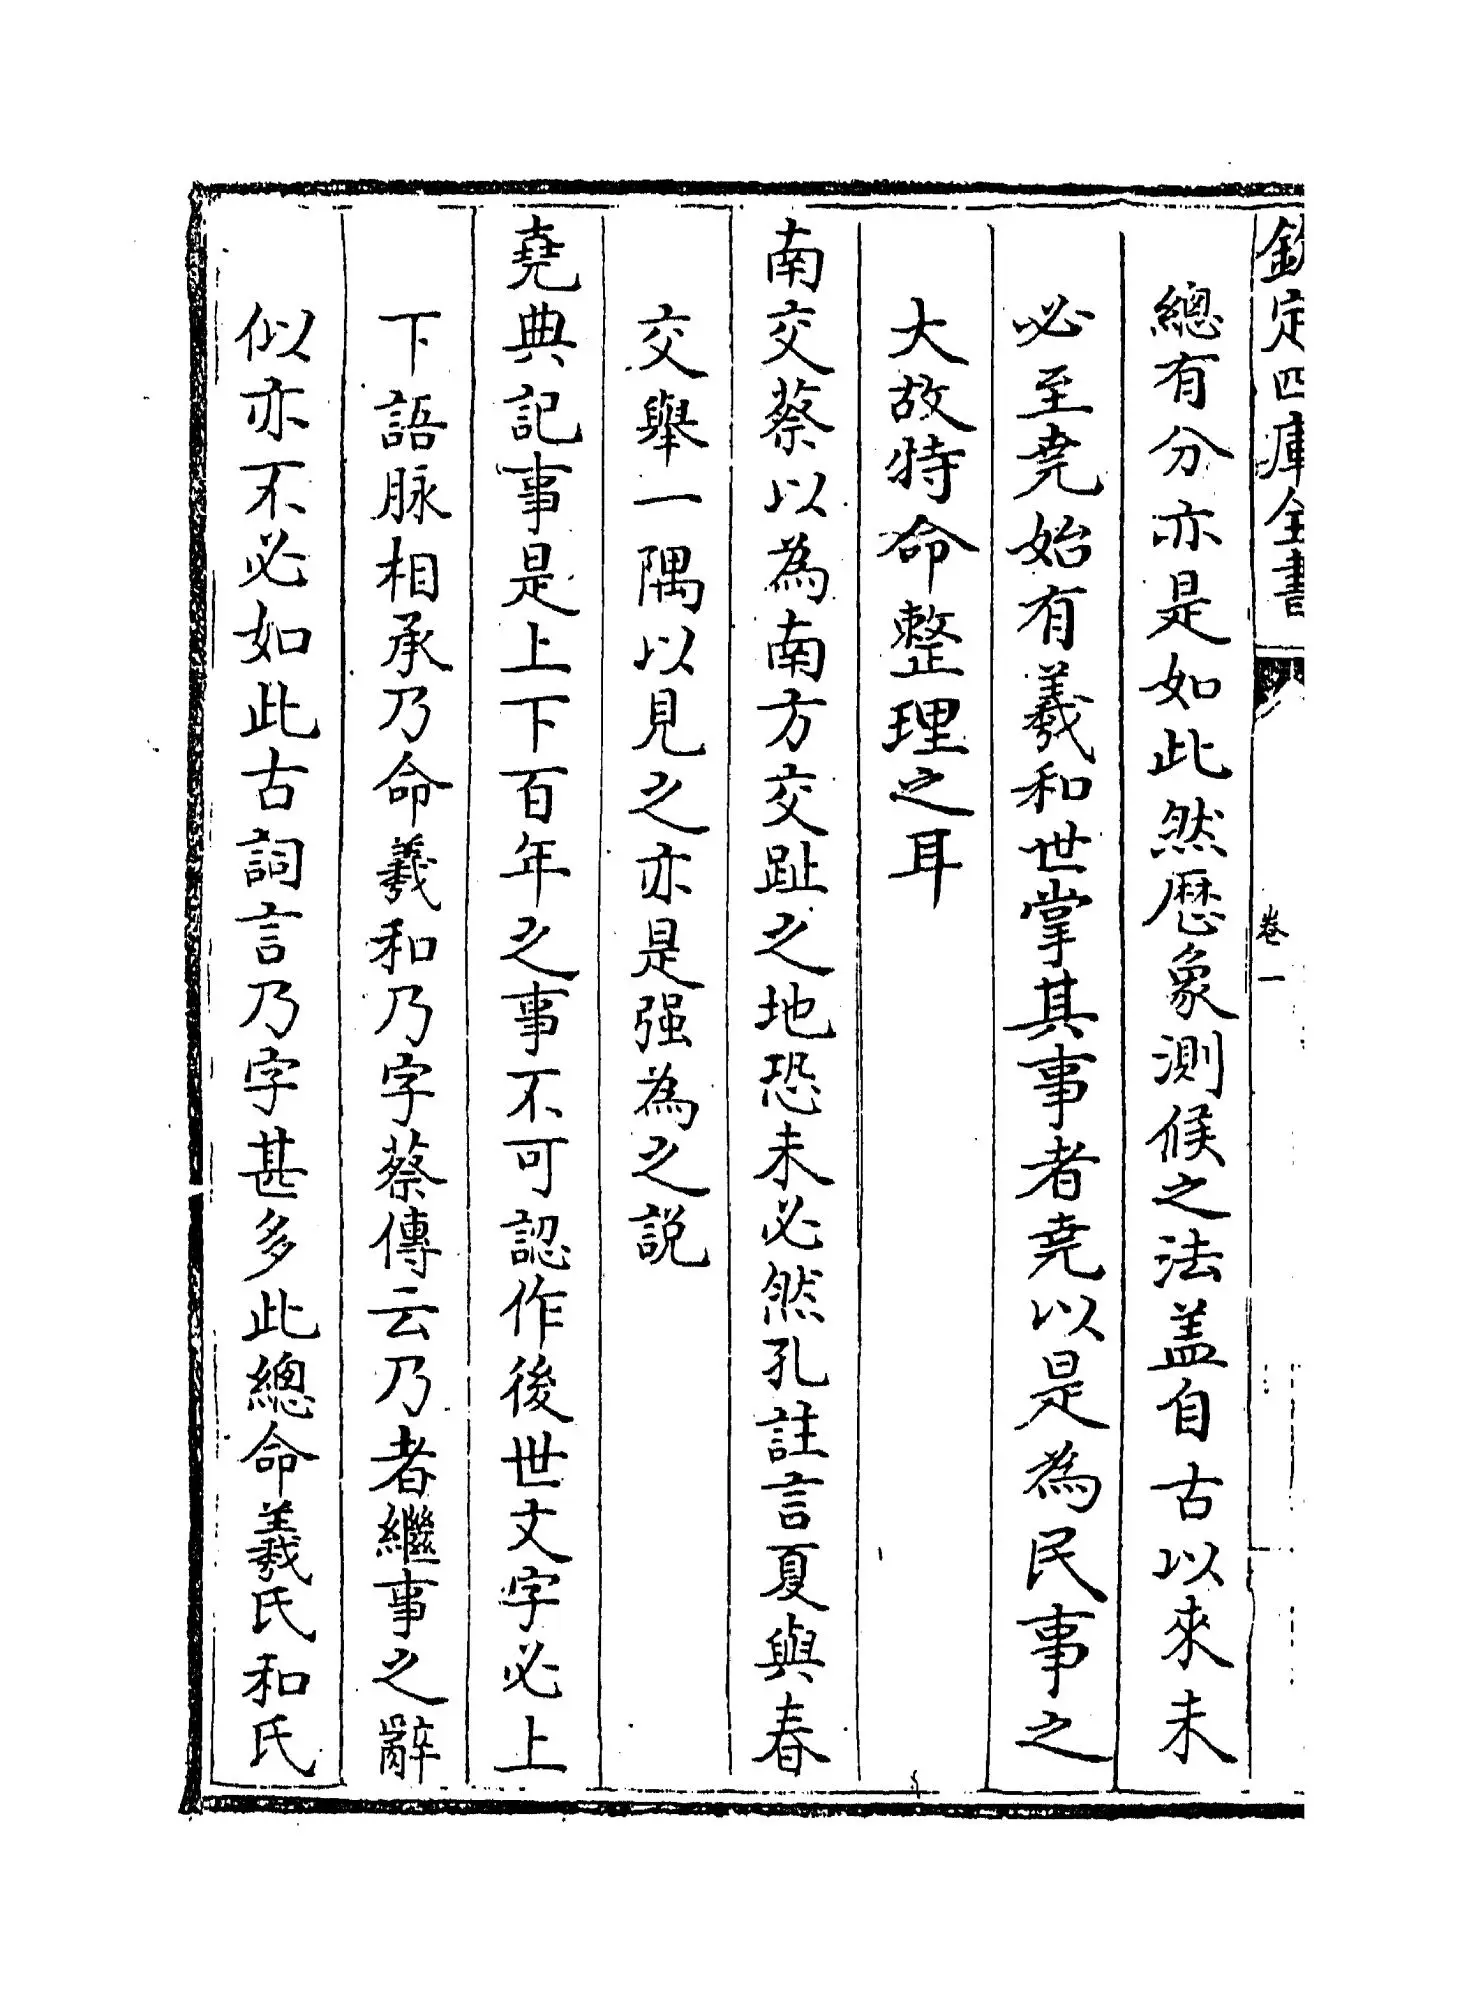 欽定四庫全書
卷一
總有分亦是如此然歴象測候之法盖自古以來未
必至堯始有羲和世掌其事者堯以是為民事之
大故特命整理之耳
南交蔡以為南方交趾之地恐未必然孔註言夏與春
交舉一隅以見之亦是强為之説
堯典記事是上下百年之事不可認作後世文字必上
下語脉相承乃命羲和乃字蔡傳云乃者繼事之辭
似亦不必如此古詞言乃字甚多此總命羲氏和氏